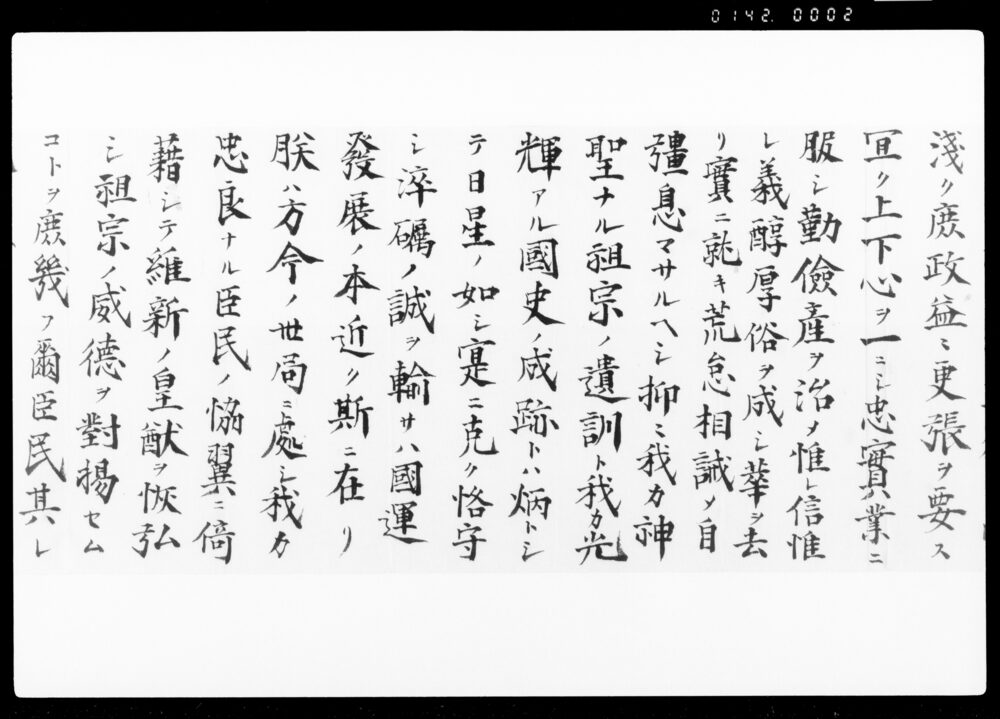 0142. 0002
淺ク庶政益〻更張ヲ要ス
宜ク上下心ヲ一ニシ忠實業ニ
服シ勤儉產ヲ治メ惟レ信惟
レ義醇厚俗ヲ成シ華ヲ去
リ實ニ就キ荒怠相誡メ自
彊息マサルヘシ抑〻我カ神
聖ナル祖宗ノ遺訓ト我カ光
輝アル國史ノ成跡トハ炳トシ
テ日星ノ如シ寔ニ克ク恪守
シ淬礪ノ誠ヲ輸サハ國運
發展ノ本近ク斯ニ在リ
朕ハ方今ノ世局ニ處シ我カ
忠良ナル臣民ノ恊翼ニ倚
藉シテ維新ノ皇猷ヲ恢弘
シ祖宗ノ威德ヲ對揚セム
コトヲ庶幾フ爾臣民其レ